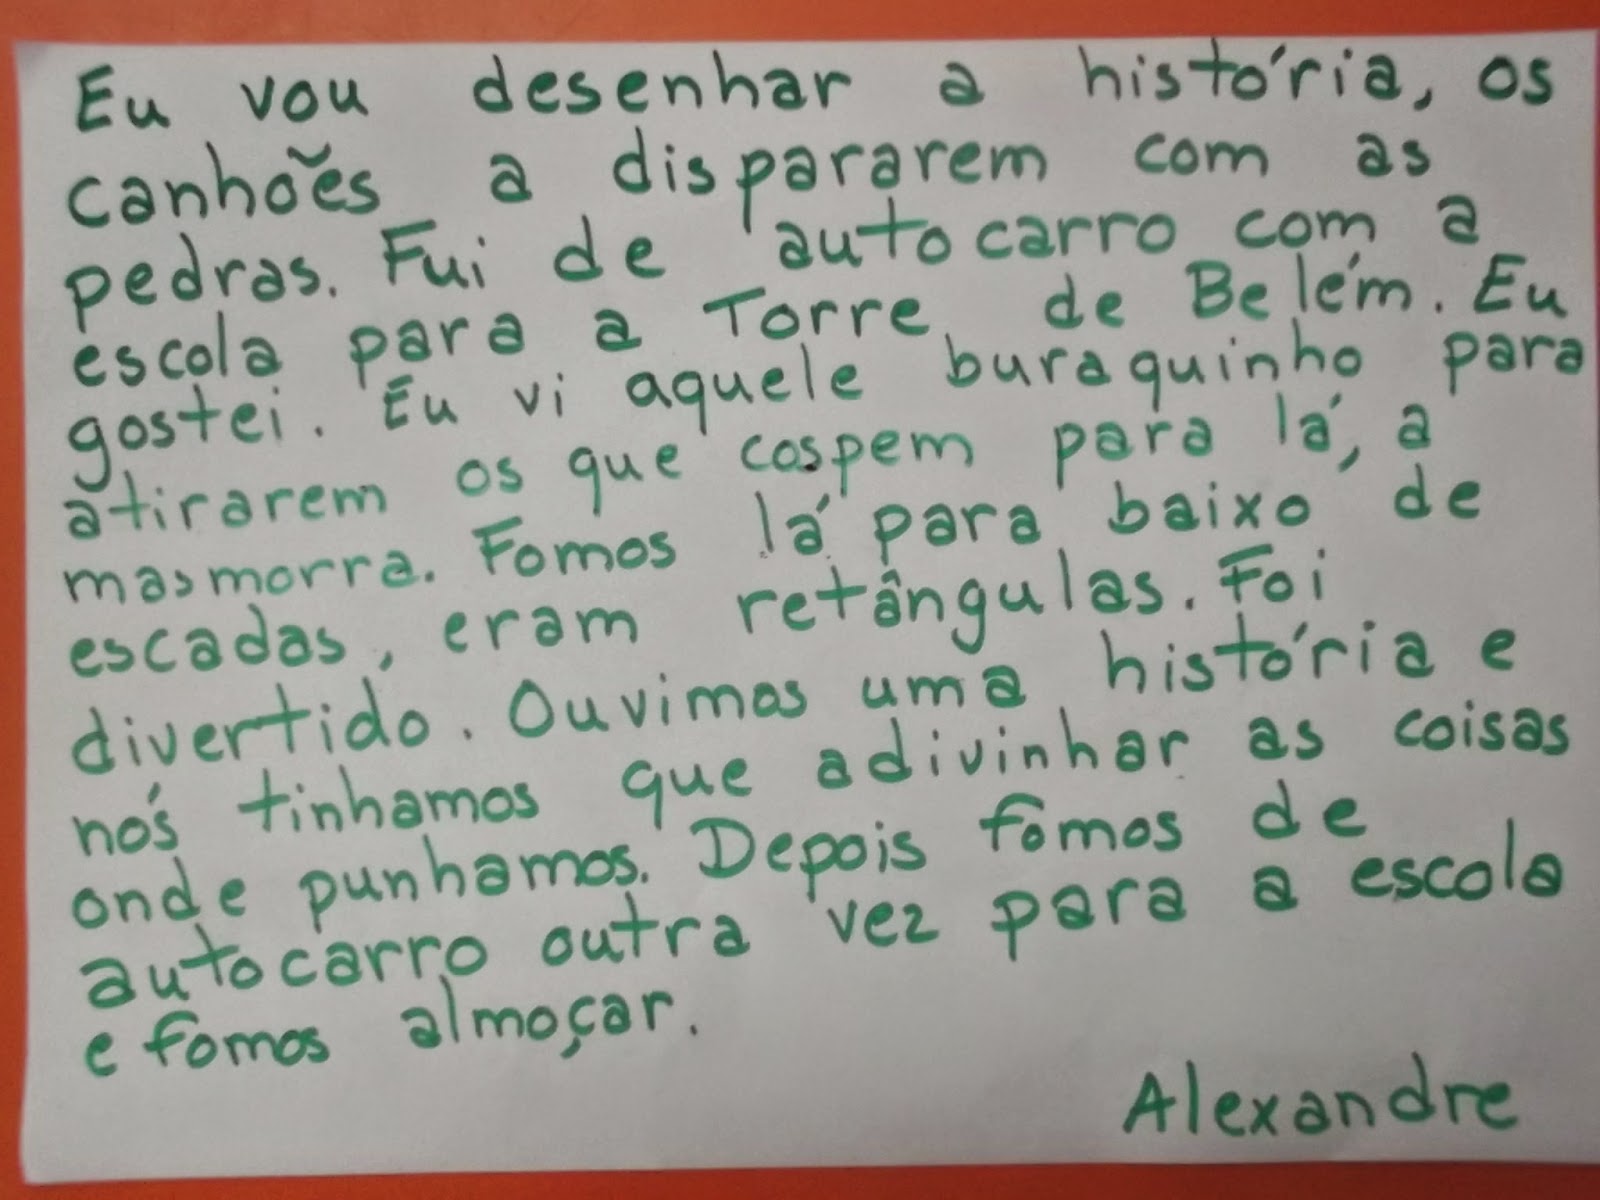 Eu vou desenhar a história, os
canhões a dispararem com as
pedras. Fui de autocarro com a
escola para a Torre de Belém. Eu
gostei. Eu vi aquele buraquinho para
atirarem os que cospem para lá, a
masmorra. Fomos lá para baixo de
escadas, eram retângulas. Foi
divertido. Ouvimos uma história e
nós tinhamos que adivinhar as coisas
onde punhamos. Depois fomos de
autocarro outra vez para a escola
e fomos almoçar.
Alexandre